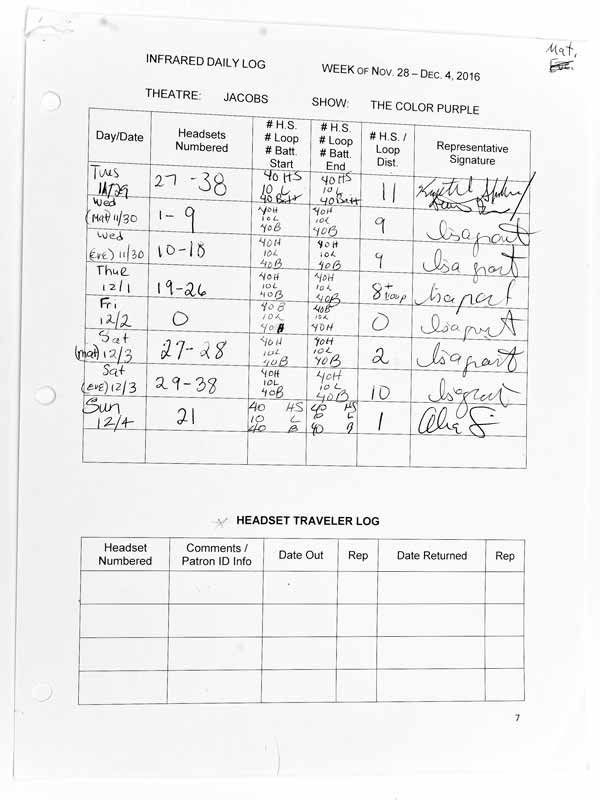 Mat.
Eve.
INFRARED DAILY LOG
WEEK OF NOV. 28 – DEC. 4, 2016
THEATRE: JACOBS SHOW: THE COLOR PURPLE
Day/Date Headsets Numbered # H.S. # Loop # Batt. Start # H.S. # Loop # Batt. End # H.S. / Loop Dist. Representative Signature
Tues 11/29 27-38 40 HS 10 L 40 Batt 40 HS 10 L 40 Batt 11
Wed (Mat) 11/30 1-9 40H 10L 40B 40H 10L 40B 9 lisa grant
Wed (Eve) 11/30 10-18 40H 10L 40B 40H 10L 40B 9 lisa grant
Thur 12/1 19-26 40H 10L 40B 40H 10L 40B 8 + lisa grant
Fri 12/2 0 40B 10L 40H 40B 10L 40H 0 lisa grant
Sat (mat) 12/3 27-28 40H 10L 40B 40H 10L 40B 2 lisa grant
Sat (eve) 12/3 29-38 40H 10L 40B 40H 10L 40B 10 lisa grant
Sun 12/4 21 40 HS 10 L 40 B 40 HS 10 L 40 B 1
HEADSET TRAVELER LOG
Headset Numbered Comments / Patron ID Info Date Out Rep Date Returned Rep
7